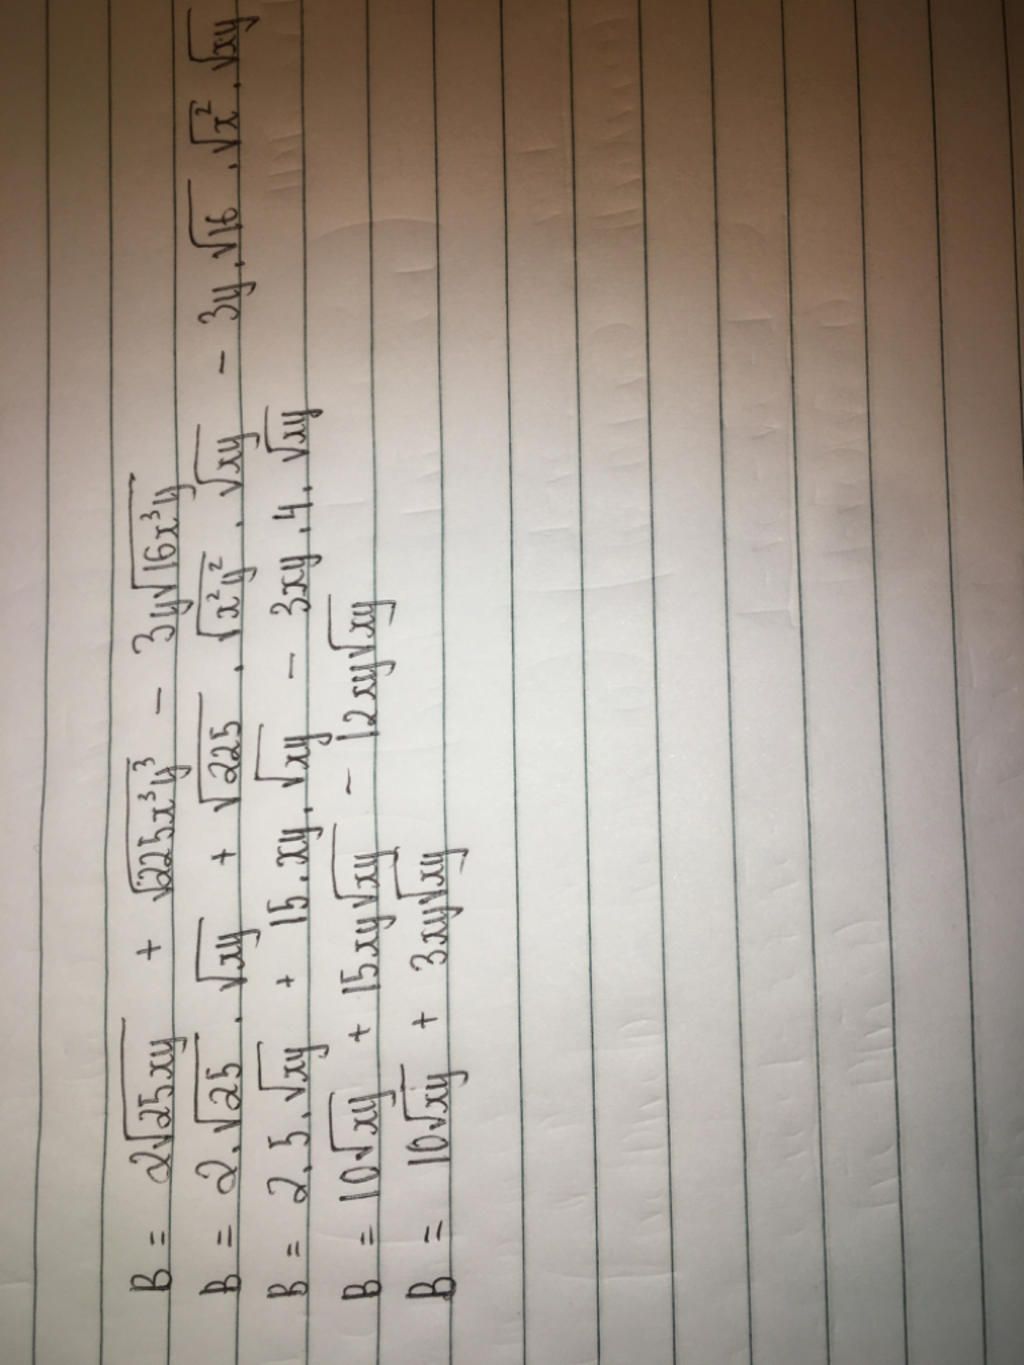 B = 2√25xy + √225x³y³ - 3y√16x³y
B = 2.√25.√xy + √225.√x²y².√xy - 3y.√16.√x².√xy
B = 2.5.√xy + 15.xy.√xy - 3xy.4.√xy
B = 10√xy + 15xy√xy - 12xy√xy
B = 10√xy + 3xy√xy